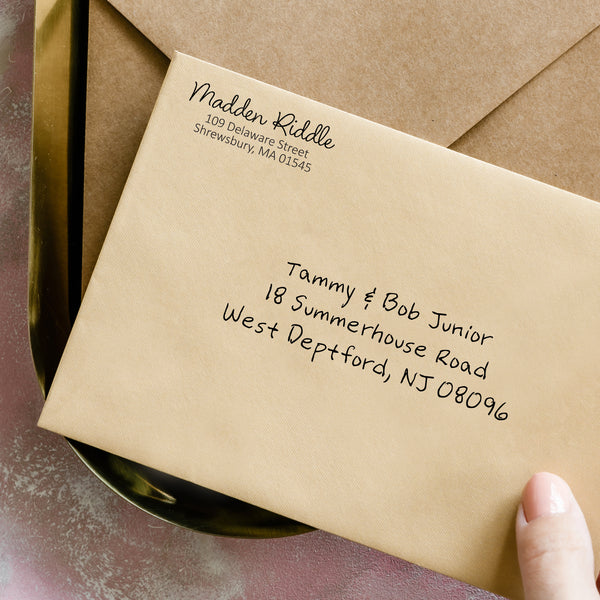 Madden Riddle
109 Delaware Street
Shrewsbury, MA 01545
Tammy & Bob Junior
18 Summerhouse Road
West Deptford, NJ 08096